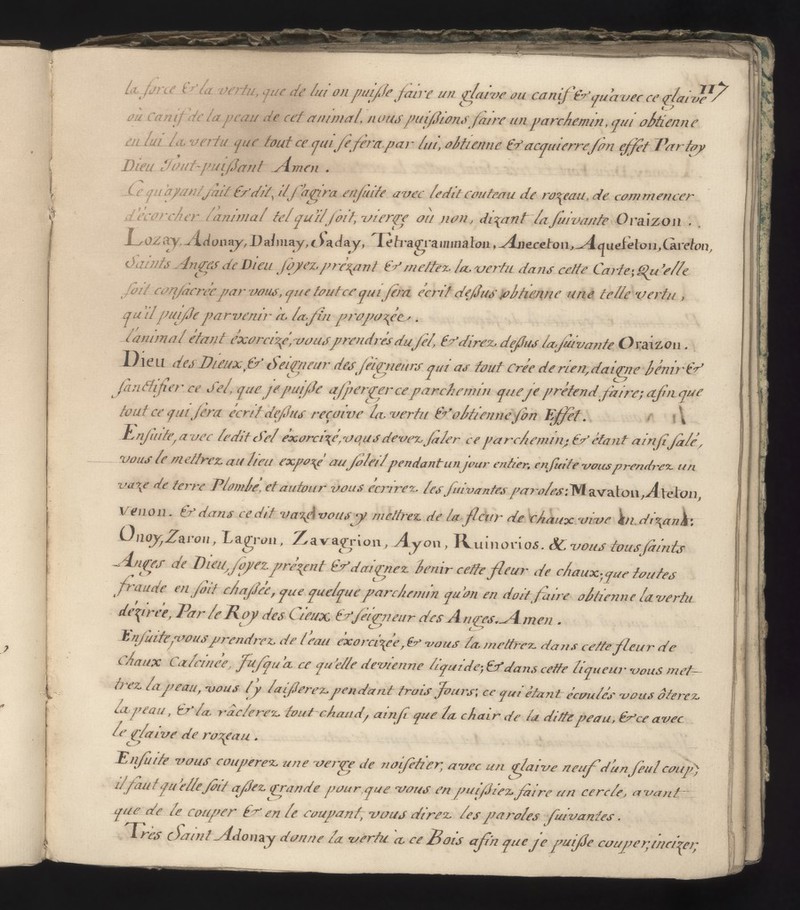 117
la force & la vertu, que de lui on puiße faire un glaive ou canif & qu'avec ce glaive
où canif de la peau de cet animal, nous puißions faire un parchemin, qui obtienne
en lui la vertu que tout ce qui se fera par lui, obtienne & acquierre son effét Par toy
Dieu Tout-puißant Amen.
Ce qu'ayant fait & dit, il s'agira ensuite avec ledit couteau de rozeau, de commencer
d'écorcher l'animal tel qu'il soit, vierge où non, dizant la suivante Oraizon.
Lozay Adonay, Dalmay, Saday, Tetragrammaton, Aneceton, Aquefeton, Careton,
Saints Anges de Dieu soyez prézant & mettez la vertu dans cette Carte; Qu'elle
soit consacrée par vous, que tout ce qui sera écrit deßus obtienne une telle vertu,
qu'il puiße parvenir à la fin propozée.
L'animal étant éxorcizé, vous prendrés du sel, & direz deßus la suivante Oraizon.
Dieu des Dieux, & Seigneur des seigneurs qui as tout crée de rien, daigne bénir &
sanctifier ce Sel, que je puiße asperger ce parchemin que je prétend faire; afin que
tout ce qui sera écrit deßus reçoive la vertu & obtienne son Effét.
Ensuite, avec ledit Sel éxorcizé, vous devez saler ce parchemin; & étant ainsi salé,
vous le mettrez au lieu expozé au soleil pendant un jour entier, ensuite vous prendrez un
vaze de terre Plombé, et autour vous écrirez les suivantes paroles: Mavaton, Atelon,
Venon. & dans ce dit vaze vous y mettrez de la fleur de chaux vive en dizant:
Onoy, Zaron, Lagron, Zavagrion, Ayon, Ruinorios. & vous tous saints
Anges de Dieu, soyez prézent & daignez benir cette fleur de chaux; que toutes
fraude en soit chaßée, que quelque parchemin qu'on en doit faire obtienne la vertu
dézirée, Par le Roy des Cieux & seigneur des Anges. Amen.
Ensuite, vous prendrez de l'eau éxorcizée, & vous la mettrez dans cette fleur de
Chaux Calcinée, Jusqu'a ce qu'elle devienne liquide; & dans cette liqueur vous met-
trez la peau, vous l'y laißerez pendant trois Jours; ce qui étant écoulés vous ôterez
la peau, & la râclerez tout chaud, ainsi que la chair de la ditte peau, & ce avec
le glaive de rozeau.
Ensuite vous couperez une verge de noisetier, avec un glaive neuf d'un seul coup;
il faut qu'elle soit aßez grande pour que vous en puißiez faire un cercle, avant
que de le couper & en le coupant, vous direz les paroles suivantes.
Très Saint Adonay donne la vertu à ce Bois afin que je puiße couper, incizer,